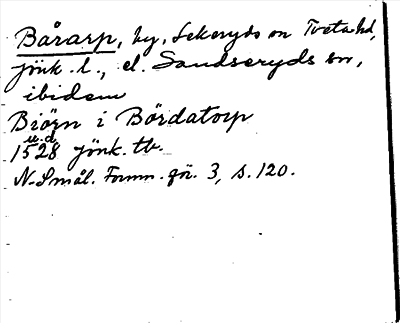 Bårarp, by, Lekeryds sn Tveta hd,
Jönk. l., el. Sandseryds sn,
ibidem
Biörn i Bördatorp
u.d.
1528 Jönk. tb.
N. Smål. Fornm. för. 3, s. 120.